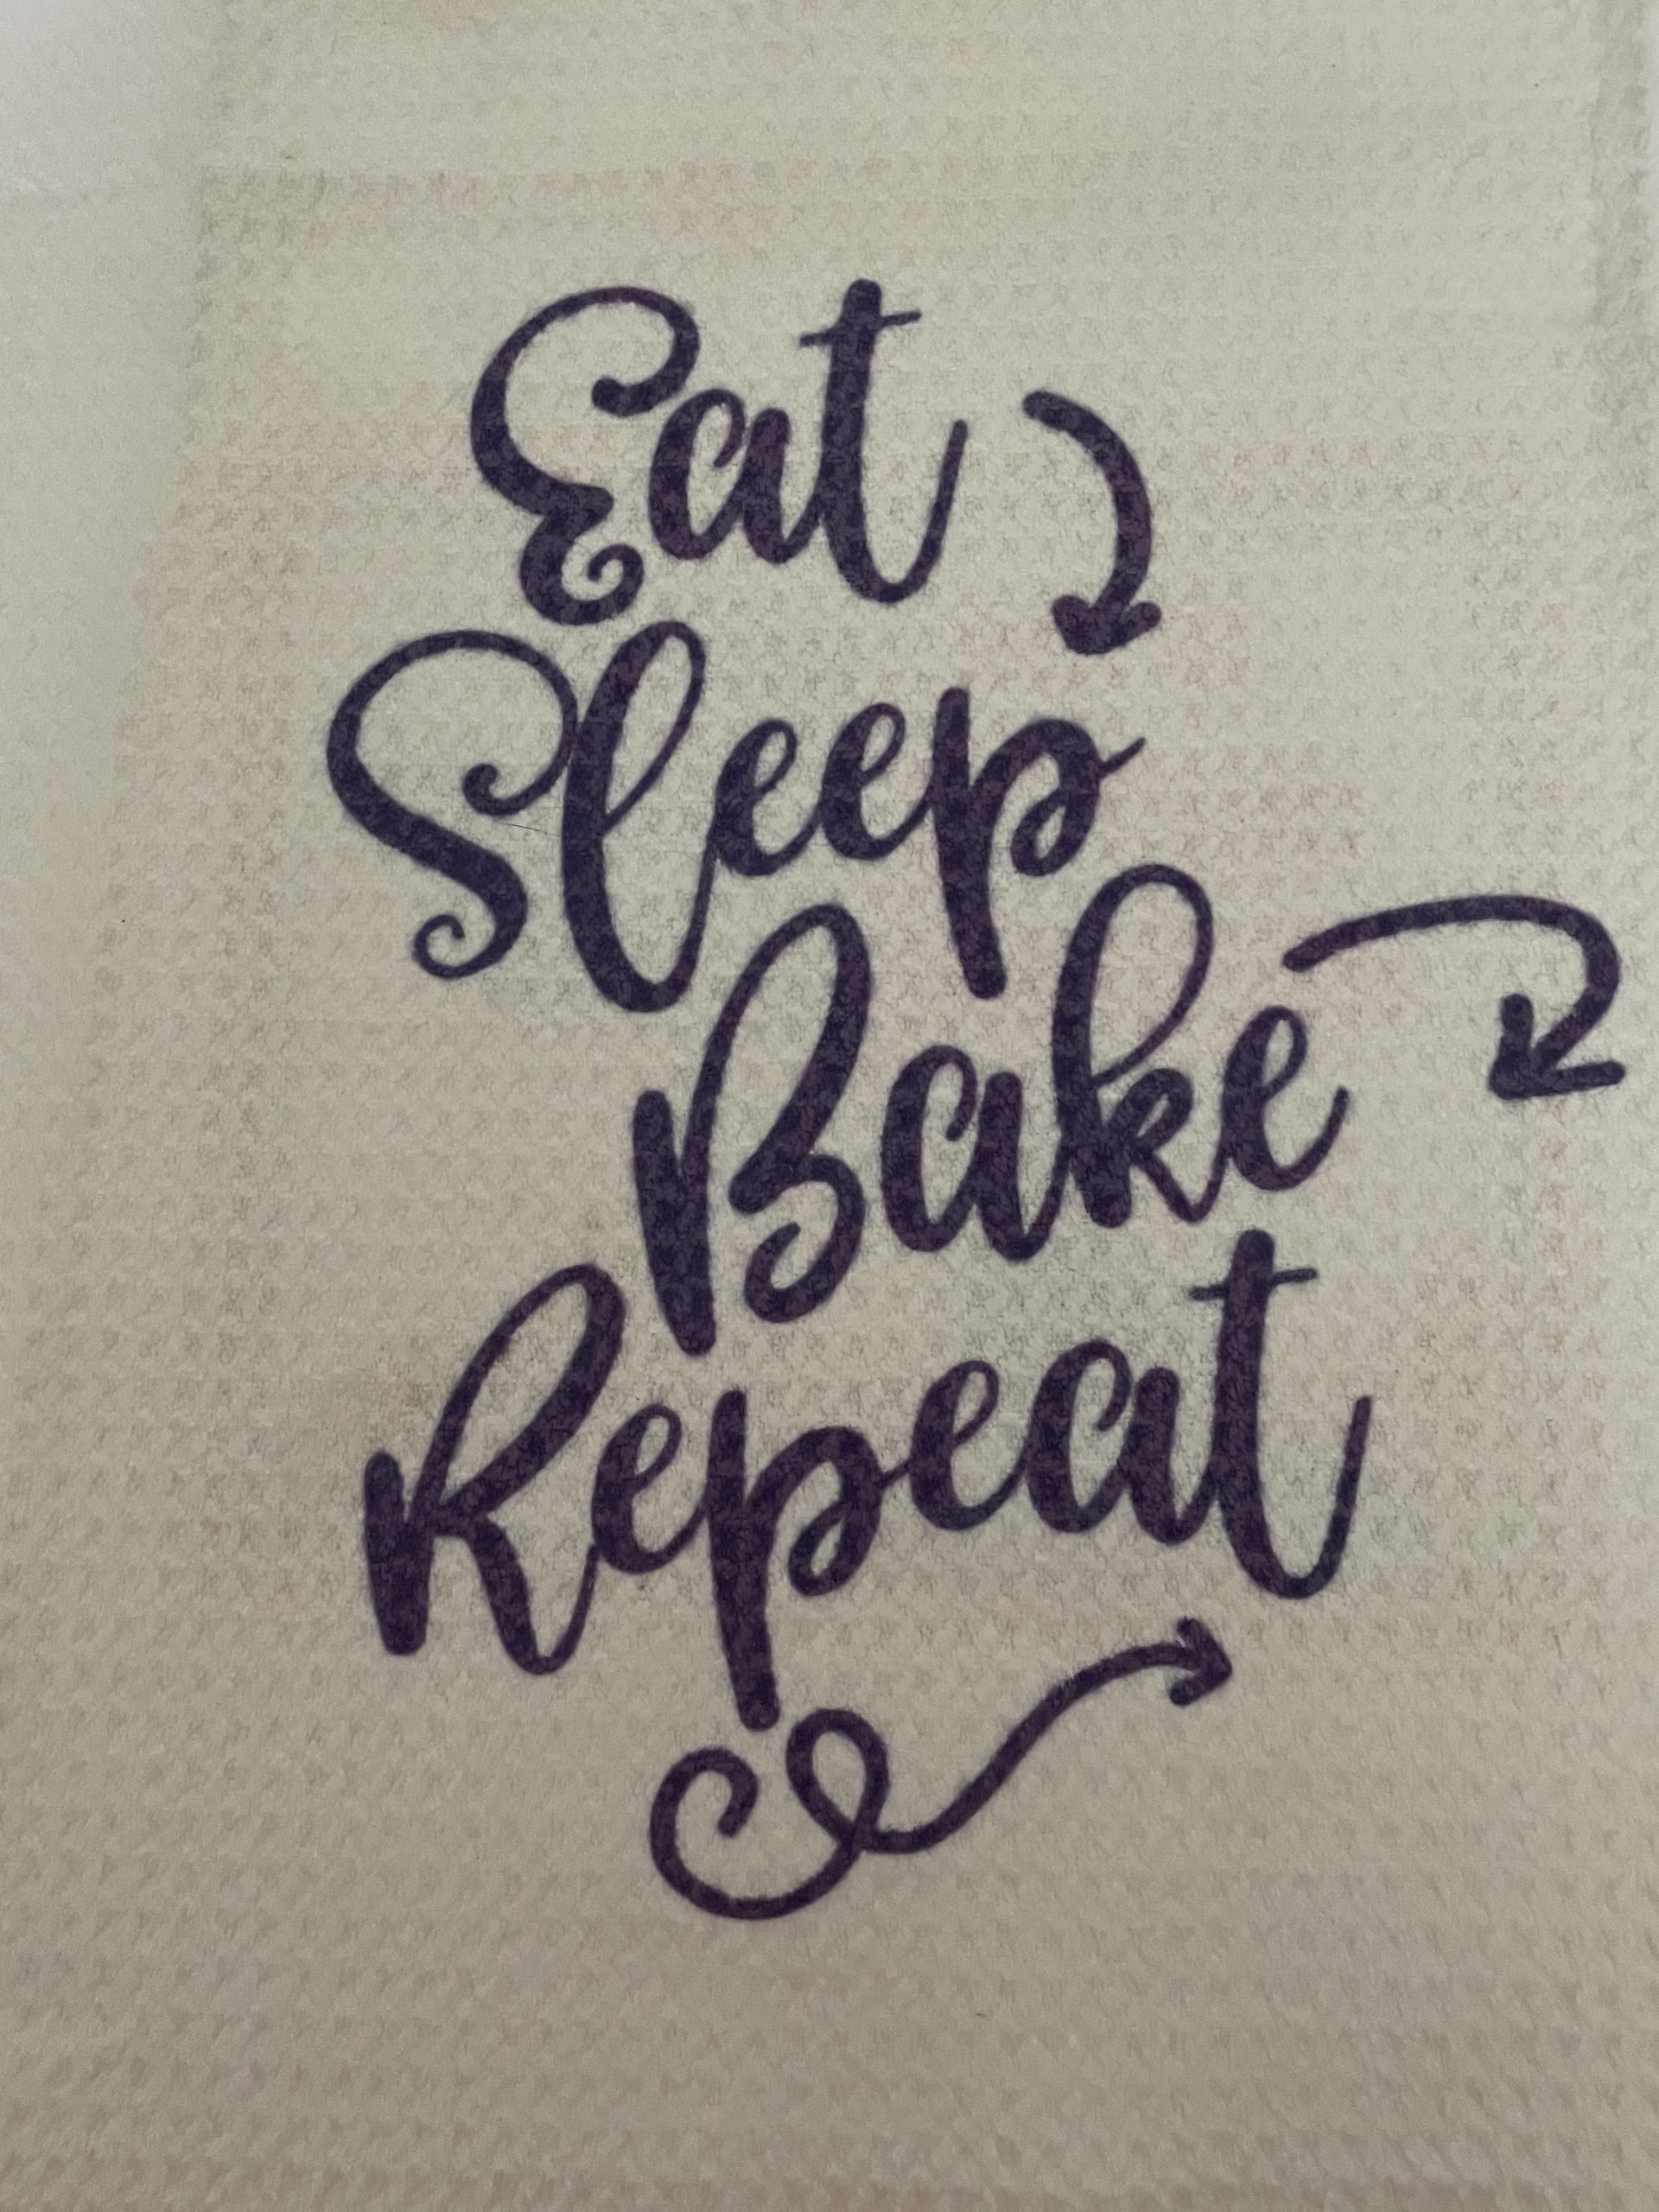 Eat
Sleep
Bake
Repeat